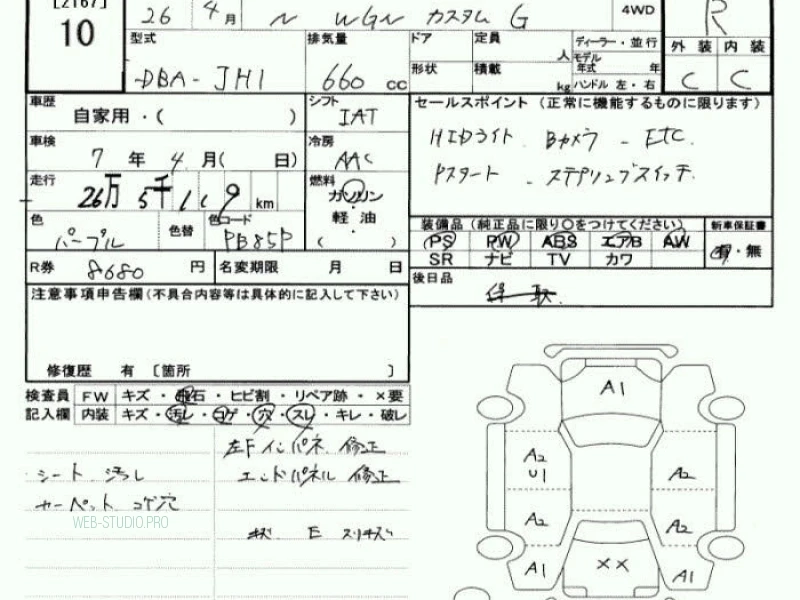 [2167]
10
26 4月 N WGN カスタム G 4WD R
型式 DBA-JH1
排気量 660 cc
ドア 定員 人
形状 積載 kg
ディーラー・並行
モデル年式 年
ハンドル 左・右
外装 内装
C C
車歴 自家用・( )
シフト IAT
車検 7年 4月( 日)
冷房 AAC
走行 26万5千119 km
燃料 ガソリン
軽油
( )
色 パープル 色替 色コード PB85P
R券 8680 円 名変期限 月 日
セールスポイント (正常に機能するものに限ります)
HIDライト Bカメラ - ETC.
Pスタート - ステアリングスイッチ.
装備品(純正品に限り○をつけてください) 新車保証書
PS PW ABS エアB AW 有・無
SR ナビ TV カワ
後日品
注意事項申告欄(不具合内容等は具体的に記入して下さい)
修復歴 有 〔箇所 〕
検査員 FW キズ・飛石・ヒビ割・リペア跡・×要
記入欄 内装 キズ・汚レ・コゲ・穴・スレ・キレ・破レ
左Fインパネ 修正
シート 汚レ エンドパネル 修正
カーペット コゲ穴
WEB-STUDIO.PRO
キズ E スリキズ
A1
A2
U1
A2
A2
A2
A1 XX A1